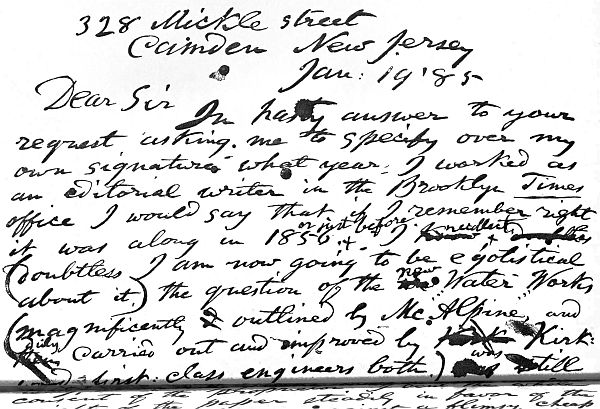 328 Mickle street
Camden New Jersey
Jan: 19 '85
Dear Sir
In hasty answer to your
request asking me to specify over my
own signature what year I worked as
an editorial writer in the Brooklyn Times
office I would say that if I remember right
it was along in 1856, or just before. I recollect
(doubtless I am now going to be egotistical
about it,) the question of the new Water Works
(magnificently outlined by McAlpine, and
duly carried out and improved by Kirk-
wood first-class engineers both,) was still